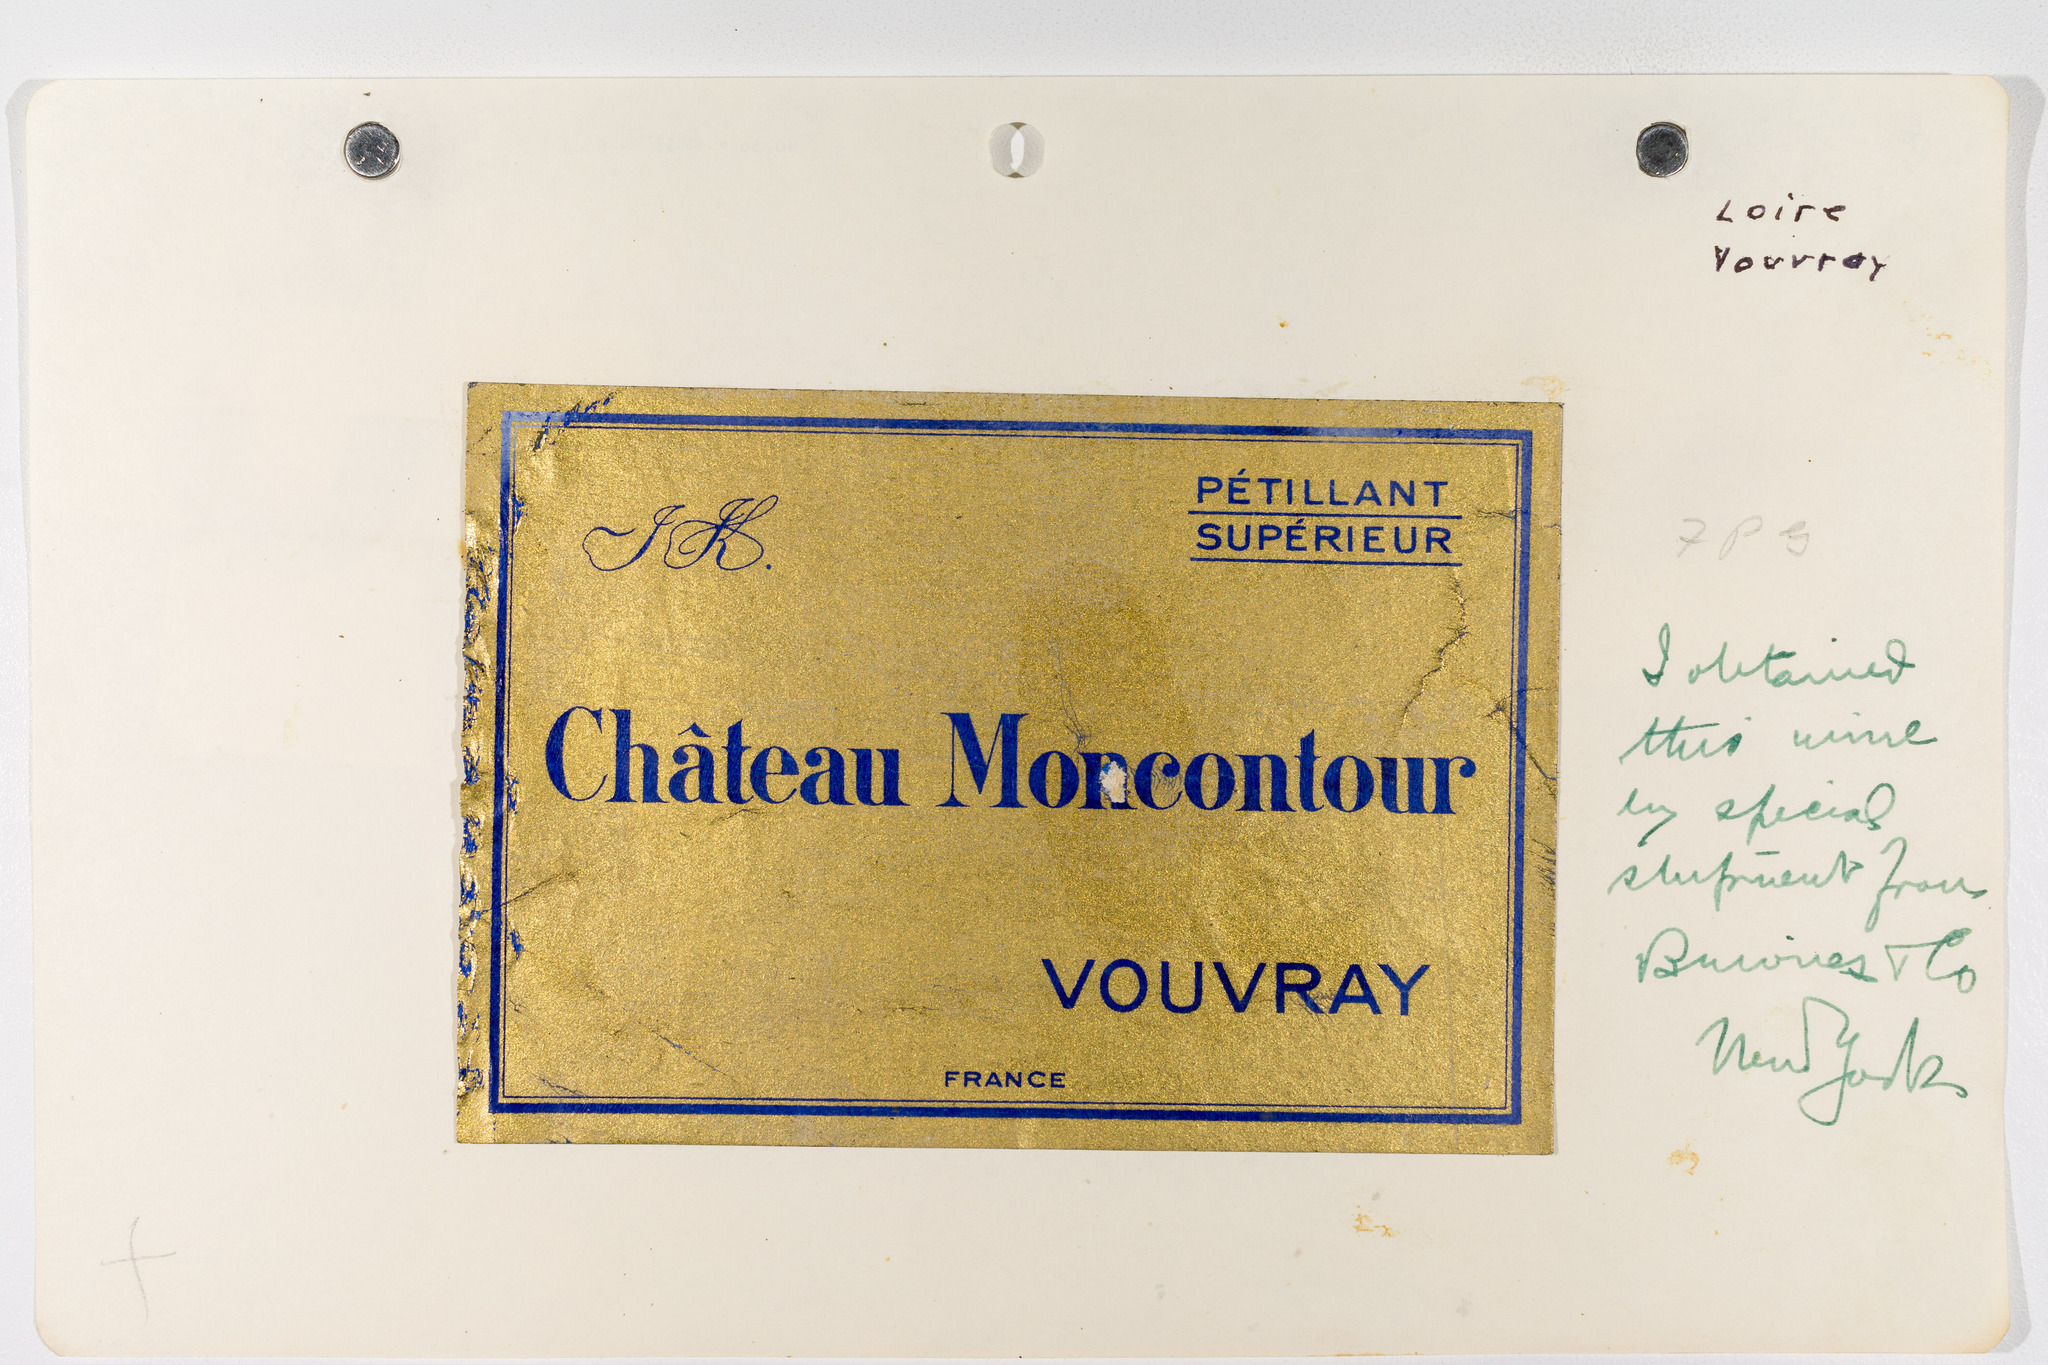 Loire
Vouvray
J K.
PÉTILLANT
SUPÉRIEUR
Château Moncontour
VOUVRAY
FRANCE
I obtained
this wine
by special
shipment from
& Co
New York